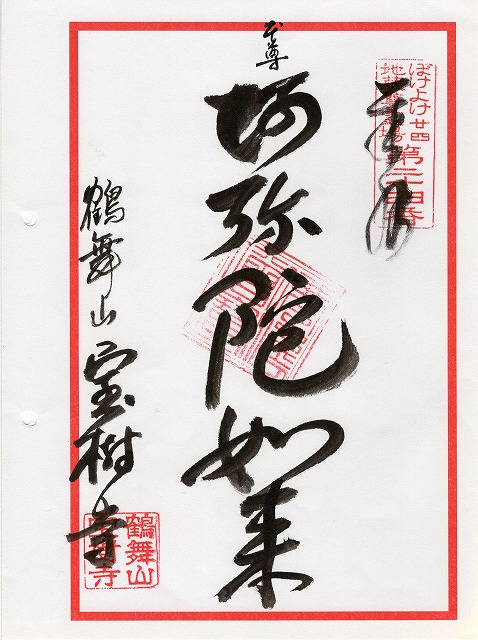 ぼけよけ廿四
地蔵尊霊場
第二十四番
奉拝
本尊
阿弥陀如来
鶴舞山 宝樹寺
鶴舞山
宝樹寺